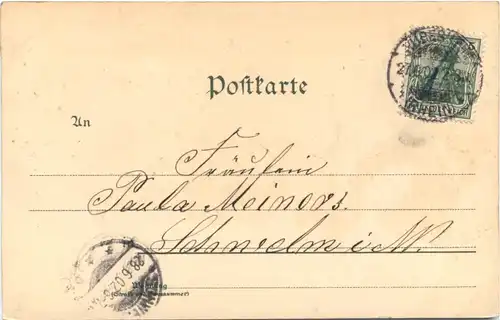 Postkarte
An
Fräulein
Paula Meinors.
Schwelm i. W.
(RHEIN)
28.6.02